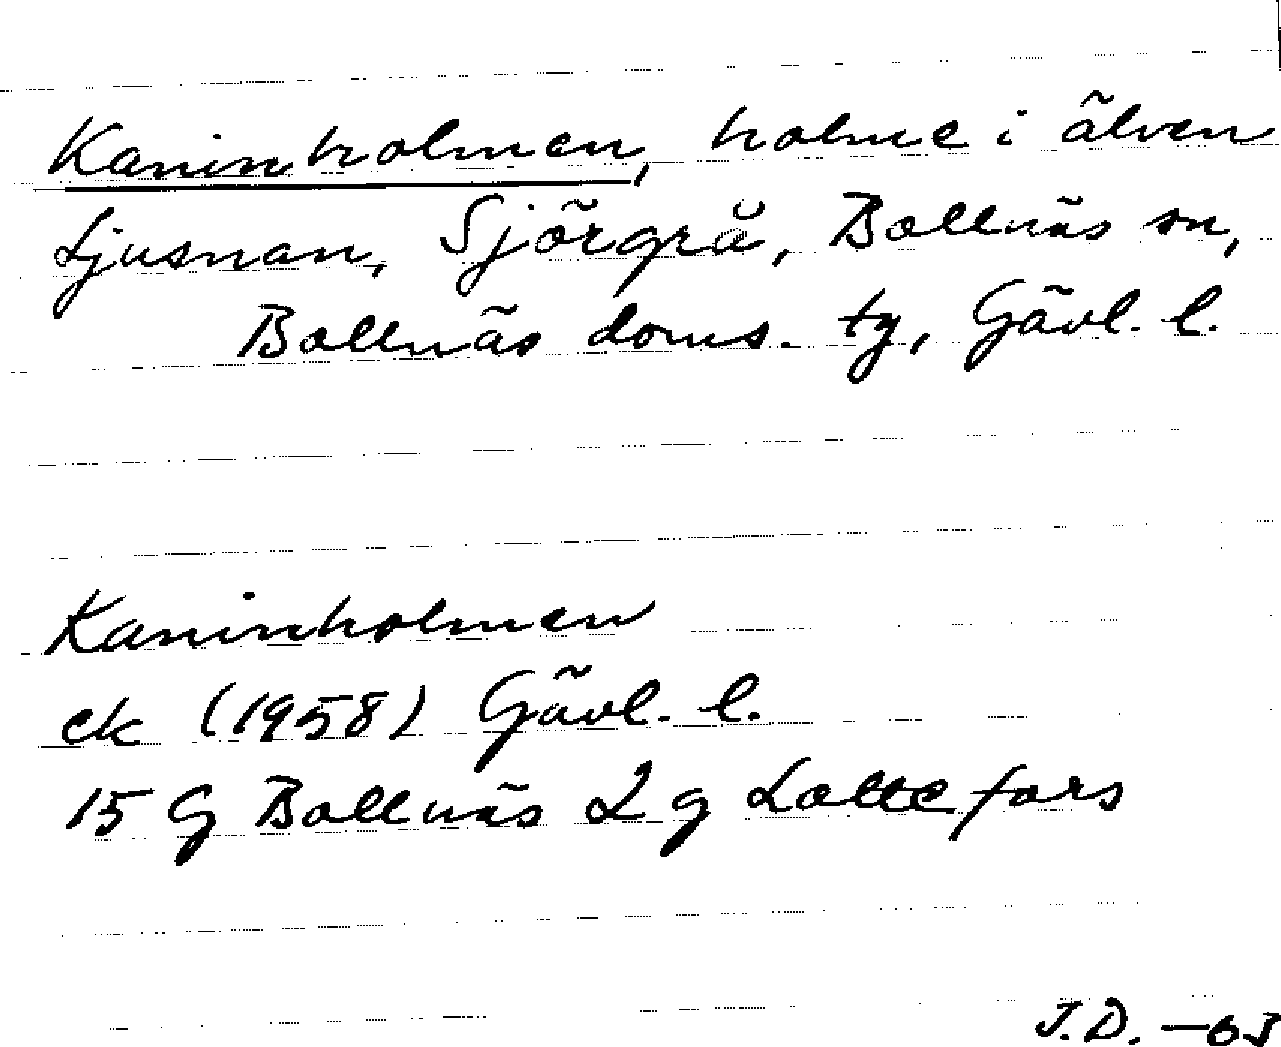 Kaninholmen, holme i älven
Ljusnan, Sjörgrå, Bollnäs sn,
Bollnäs doms. tg, Gävl. l.
Kaninholmen
ek (1958) Gävl. l.
15 G Bollnäs 2 g Lottefors
J.D. -63